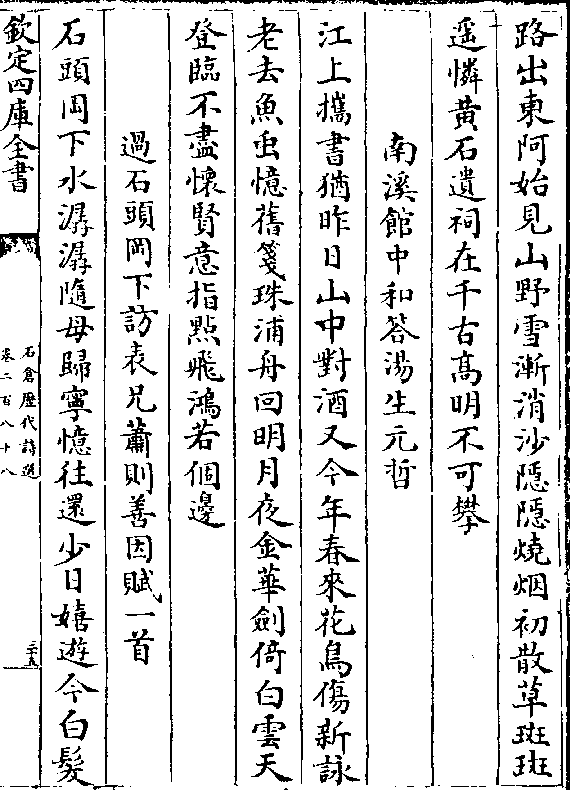 路出東阿始見山野雪漸消沙隱隱燒烟初散草斑斑
遥憐黄石遺祠在千古髙明不可攀
南溪館中和答湯生元哲
江上攜書猶昨日山中對酒又今年春來花鳥傷新詠
老去魚䖝憶舊箋珠浦舟回明月夜金華劍倚白雲天
登臨不盡懷賢意指點飛鴻若個邊
過石頭岡下訪表兄蕭則善因賦一首
石頭岡下水潺潺隨母歸寧憶往還少日嬉遊今白髮
欽定四庫全書
石倉歴代詩選
卷二百八十八
三十五